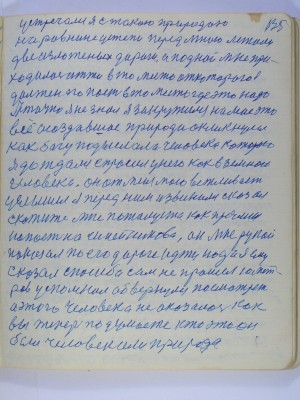 135
устречался с такою природою
на ровнине в степе передмною лежали
две изложеных дороги, а по одной мне при-
ходилось итти в то место от которого я
должен попасть в то место где это надо
Я точно я не знал я закружился на мае это
всё создавшое природи он икнулся
как богу подыслала человека которого
я дождал и спросил у него как в а
человека. он от меня вежливає
услышил я перед ним извинилси сказал
скажите мне пожалуста как пройти
попасть на Синейникова, а он мне рукой
показал по его дороге идти надо я ему
сказал спосеба сам не прошол со мет-
ров успомнил обвернулся посмотреть
а этого человека не оказалось как
вы теперь подумаете кто это он
был человек или природа